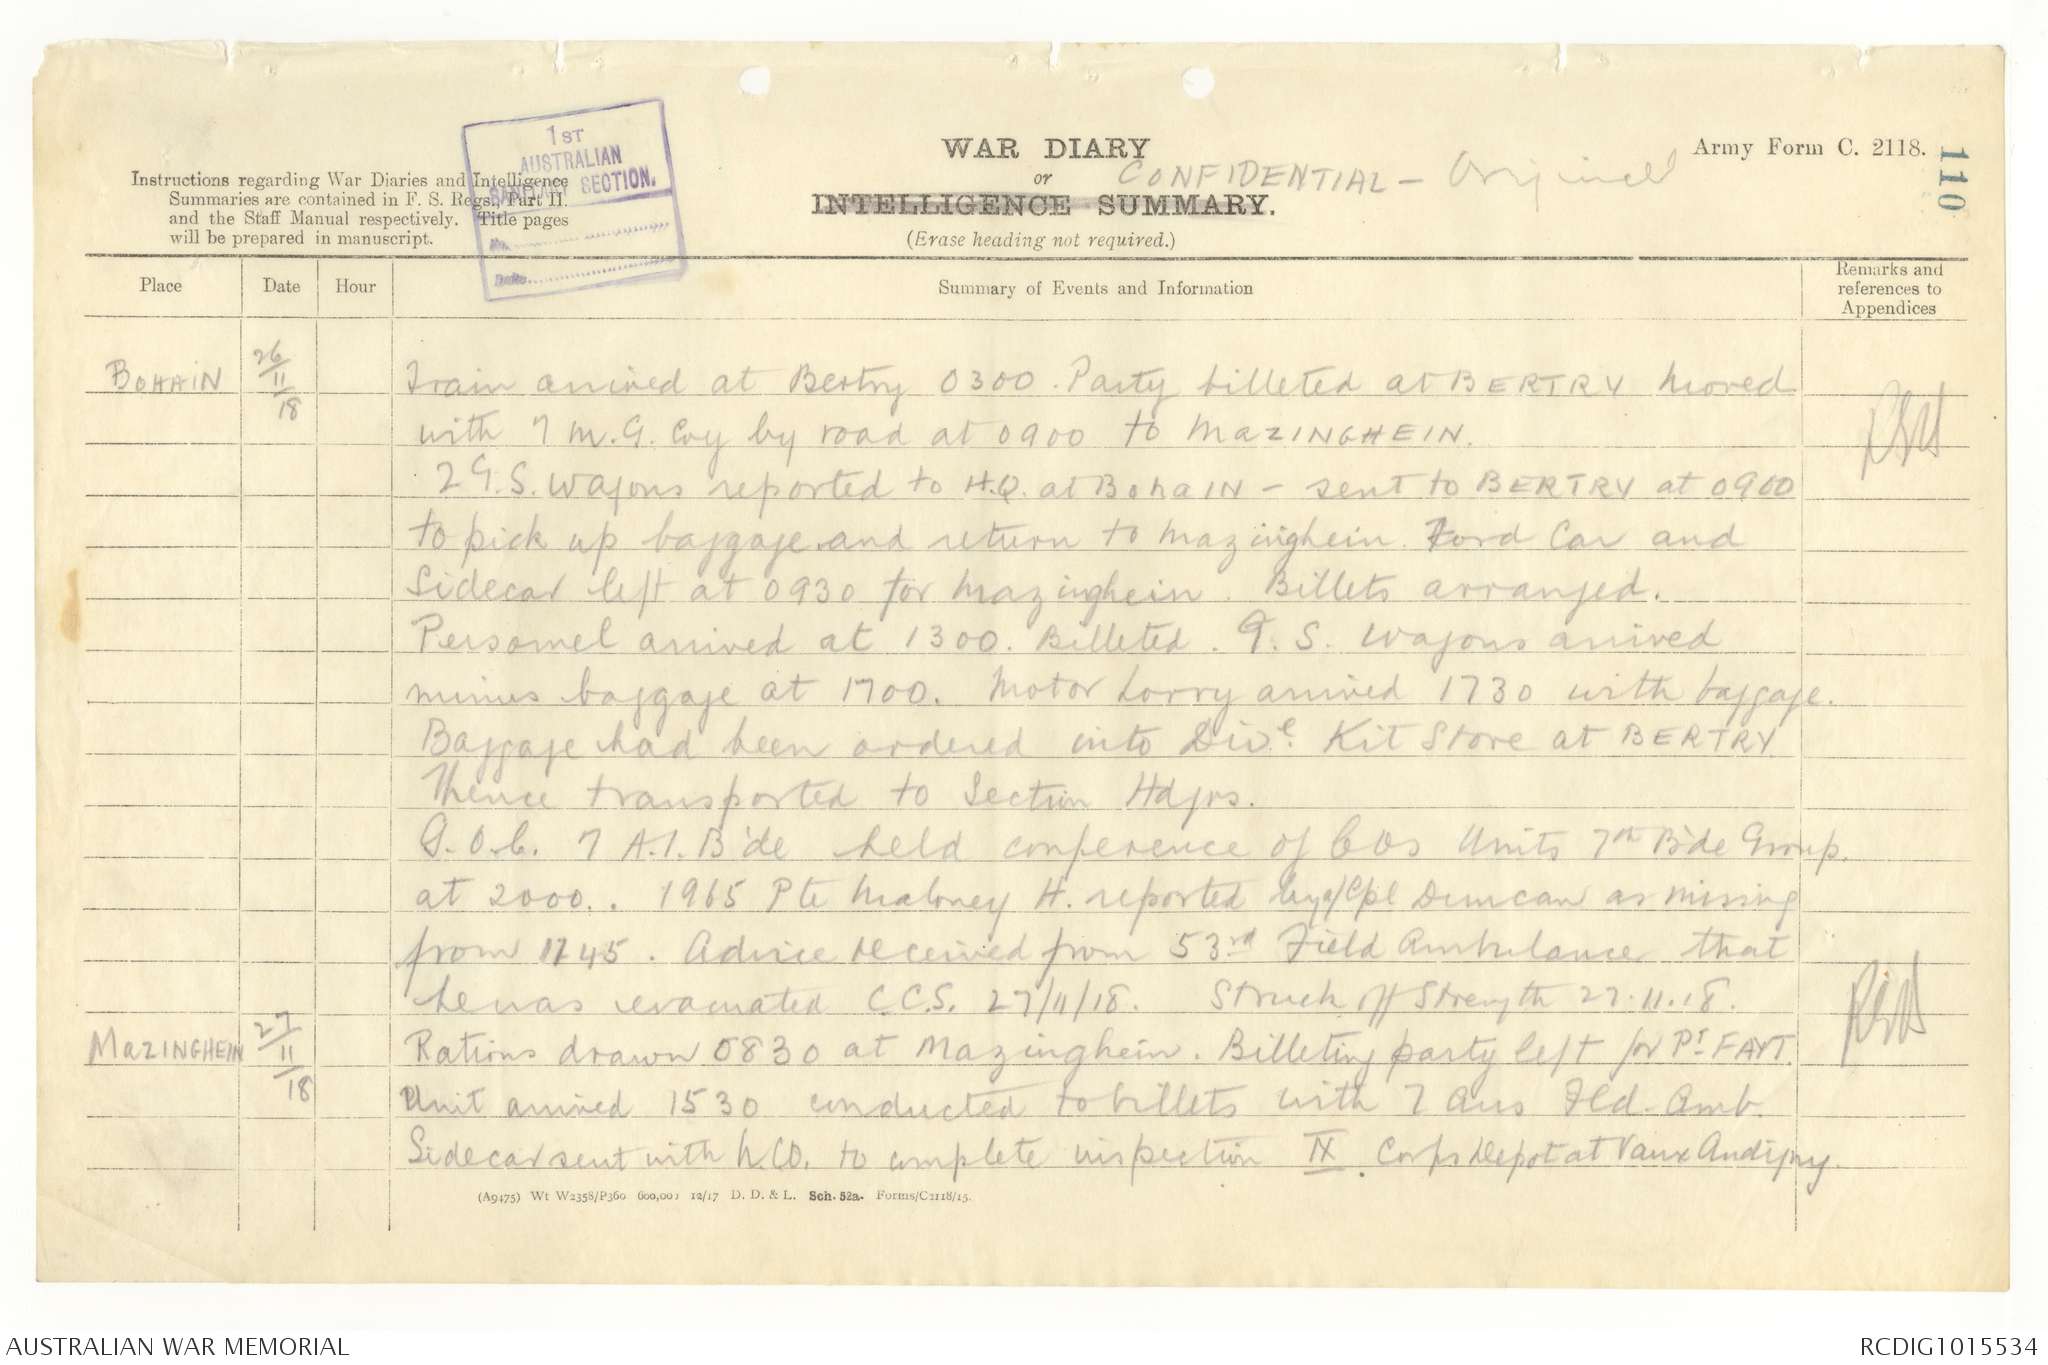 1ST
AUSTRALIAN
SANITARY SECTION.
No.
Date
WAR DIARY
or
INTELLIGENCE SUMMARY.
(Erase heading not required.)
CONFIDENTIAL - Original
Army Form C. 2118.
110
Instructions regarding War Diaries and Intelligence
Summaries are contained in F. S. Regs., Part II.
and the Staff Manual respectively. Title pages
will be prepared in manuscript.
Place Date Hour Summary of Events and Information Remarks and references to Appendices
BOHAIN 26/11/18 Train arrived at Bertry 0300. Party billeted at BERTRY moved
with 7 M.G. Coy by road at 0900 to MAZINGHEIN.
2 G.S. Wagons reported to H.Q. at BOHAIN - sent to BERTRY at 0900
to pick up baggage and return to Mazinghein. Ford Car and
Sidecar left at 0930 for Mazinghein. Billets arranged.
Personnel arrived at 1300. Billeted. G.S. Wagons arrived
minus baggage at 1700. Motor Lorry arrived 1730 with baggage.
Baggage had been ordered into Dive. Kit Store at BERTRY
Thence transported to Section Hdqrs.
G.O.C. 7 A.I. B'de held conference of COs Units 7th B'de Group.
at 2000. 1965 Pte Maloney H. reported by a/Cpl Duncan as missing
from 1245. Advice received from 53rd Field Ambulance that
he was evacuated C.C.S. 27/11/18. Struck off Strength 27.11.18.
MAZINGHEIN 27/11/18 Rations drawn 0830 at Mazinghein. Billeting party left for Pt FAYT.
Unit arrived 1530 conducted to billets with 7 Aus Fld. Amb.
Sidecar sent with N.CO. to complete inspection IX Corps Depot at Vaux Andigny.
(A9475) Wt W2358/P360 600,000 12/17 D. D. & L. Sch. 52a. Forms/C2118/15.
AUSTRALIAN WAR MEMORIAL
RCDIG1015534